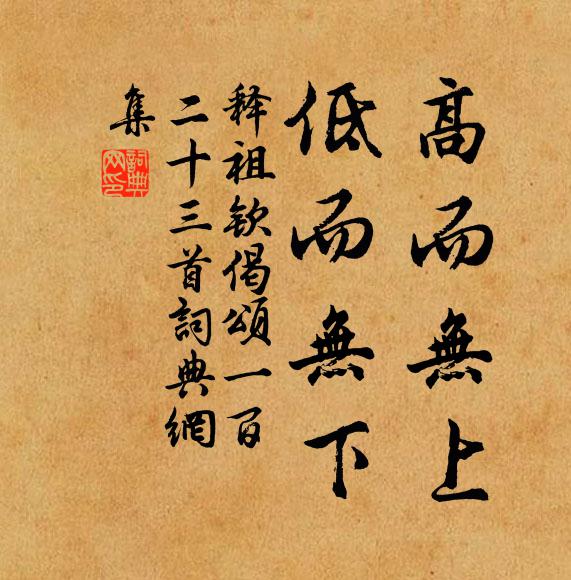 高而無上
低而無下
释祖欽偈頌一百
二十三首詞典網
集
詞典網印